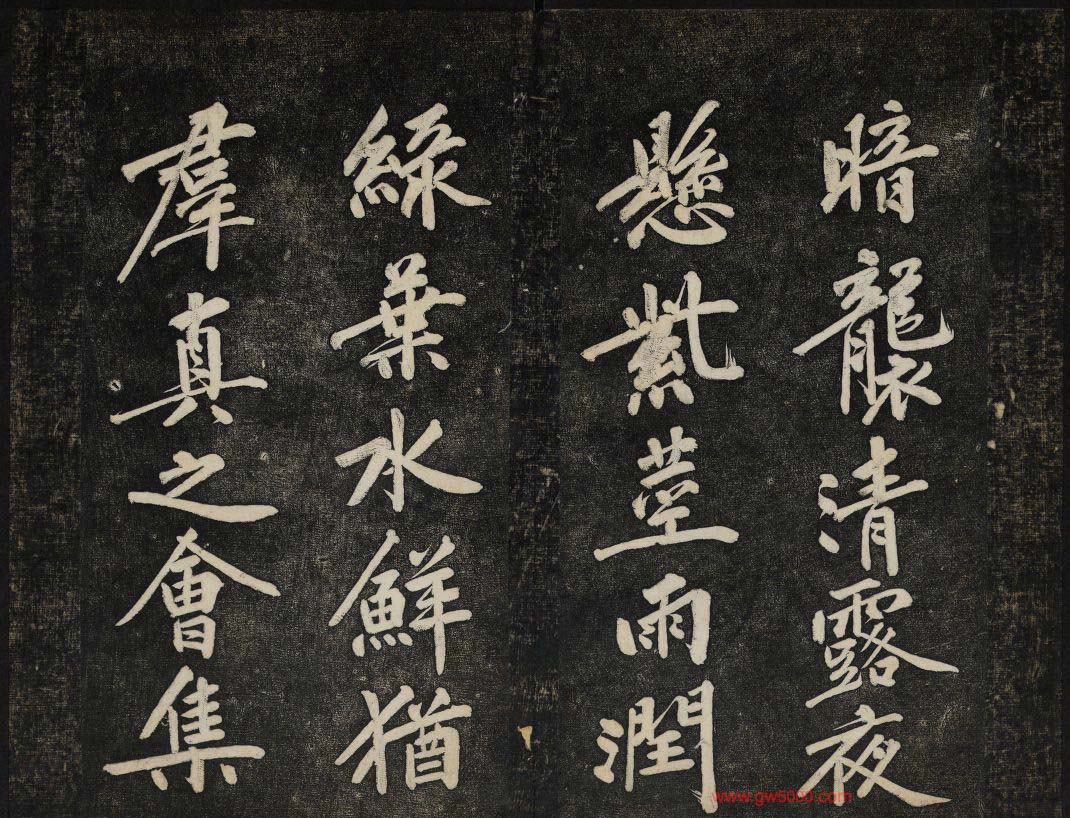 暗襲清露夜
懸紫莖雨潤
綠葉水鮮猶
羣真之會集
www.gw5000.com